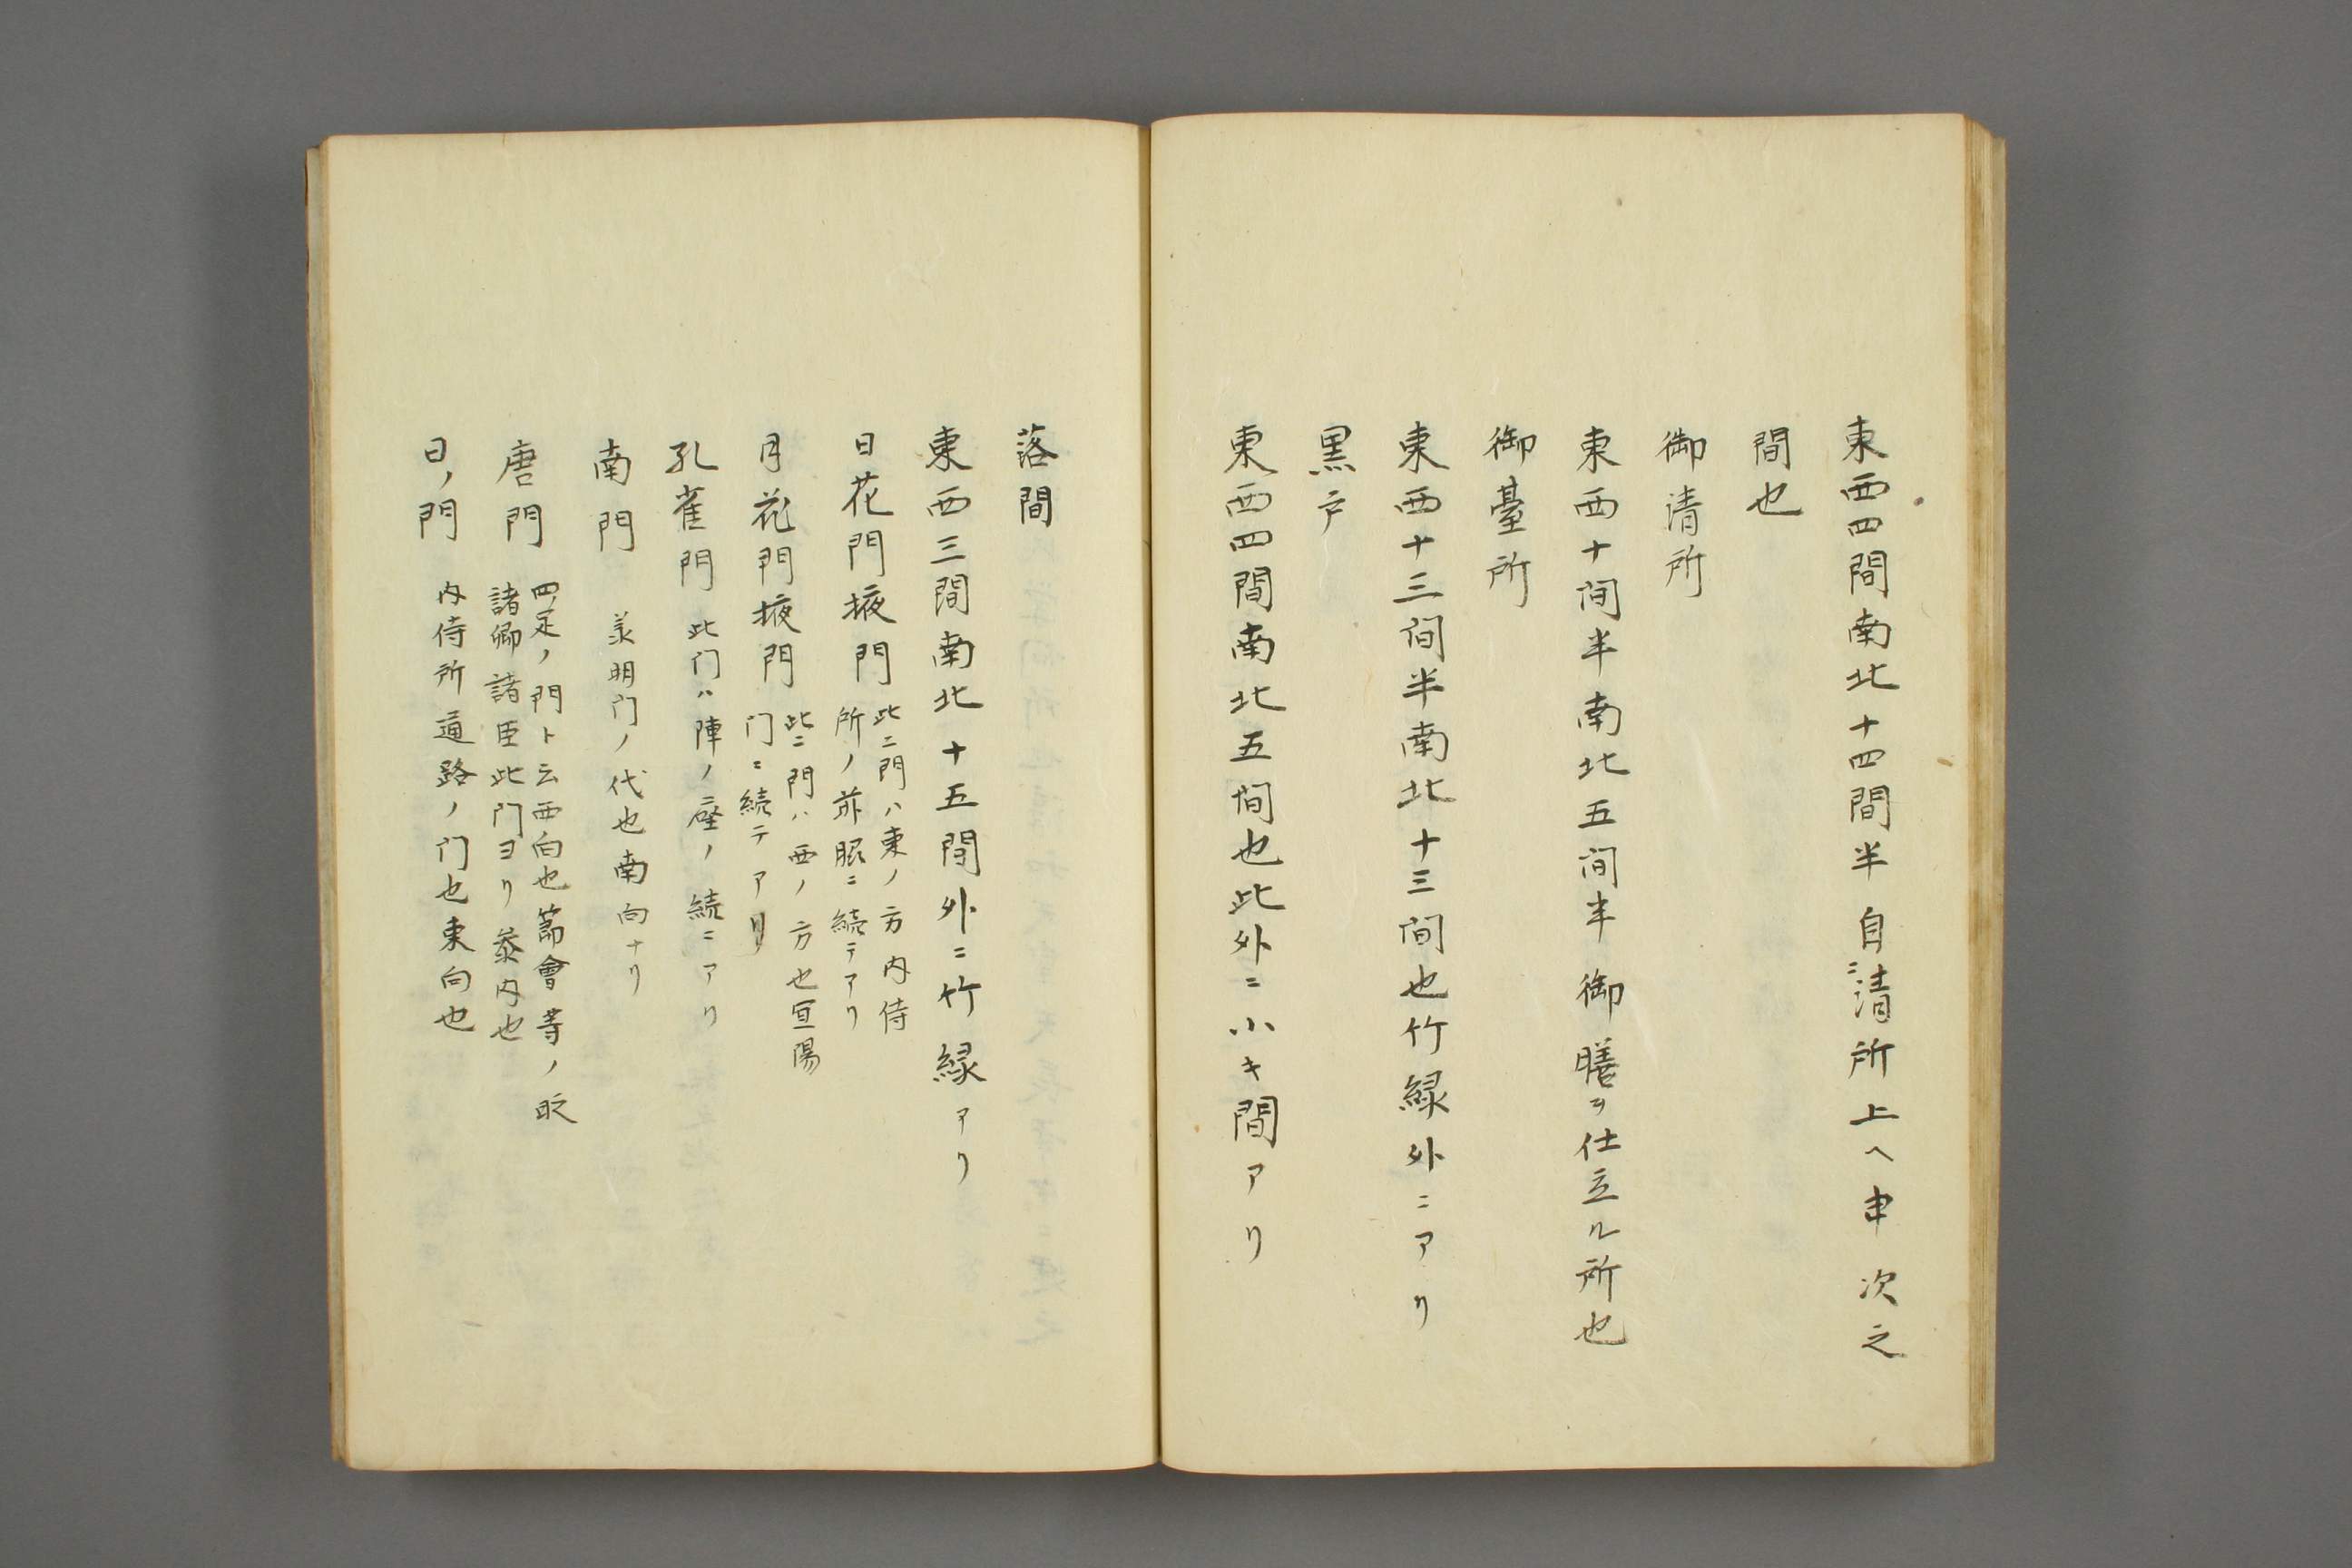 東西四間南北十四間半自ニ清所上ヘ申次之
間也
御清所
東西十间半南北五间半御膳ヲ仕立ル所也
御臺所
東西十三间半南北十三间也竹縁外ニアリ
黒戸
東西四間南北五间也此外ニ小キ間アリ
落間
東西三間南北十五間外ニ竹縁アリ
日花門掖門
此二門ハ東ノ方内侍
所ノ前服ニ続テアリ
月花門掖門
此ニ門ハ西ノ方也宣陽
门ニ続テアリ
孔雀門
此门ハ陣ノ座ノ続ニアリ
南門
羕明门ノ代也南向ナリ
唐門
四足ノ門ト云西向也節會等ノ時
諸卿諸臣此门ヨリ参内也
日ノ門
内侍所通路ノ门也東向也